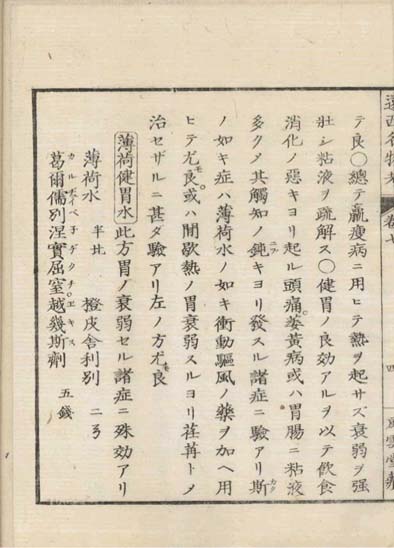 遠西名物考 卷七 四 風雲堂藏
テ良〇總テ羸瘦病ニ用ヒテ熱ヲ起サズ衰弱ヲ强
壯シ粘液ヲ疏解ス〇健胃ノ良効アルヲ以テ飮食
消化ノ惡キヨリ起ル頭痛。萎黃病或ハ胃腸ニ粘液
多ク〆其觸知ノ鈍キヨリ發スル諸症ニ驗アリ斯
ノ如キ症ハ薄荷水ノ如キ衝動驅風ノ藥ヲ加ヘ用
ヒテ尤モ良。或ハ間歇熱ノ胃衰弱スルヨリ荏苒ト〆
治セザルニ甚ダ驗アリ左ノ方尤モ良
薄荷健胃水 此方胃ノ衰弱セル諸症ニ殊効アリ
薄荷水 半比 橙皮舍利別 二ヲ
葛爾儒別涅實屈窒。越幾斯劑 五錢